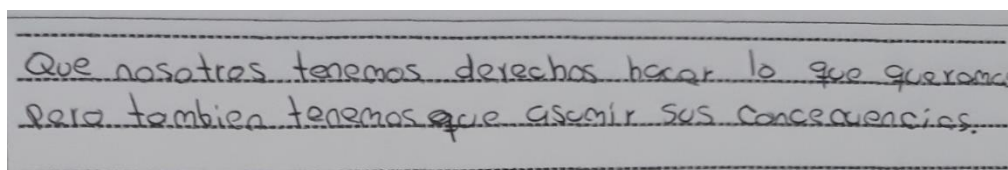 Que nosotros tenemos derechos hacar lo que queramo
pero tambien tenemos que asumir sus concecuencias.